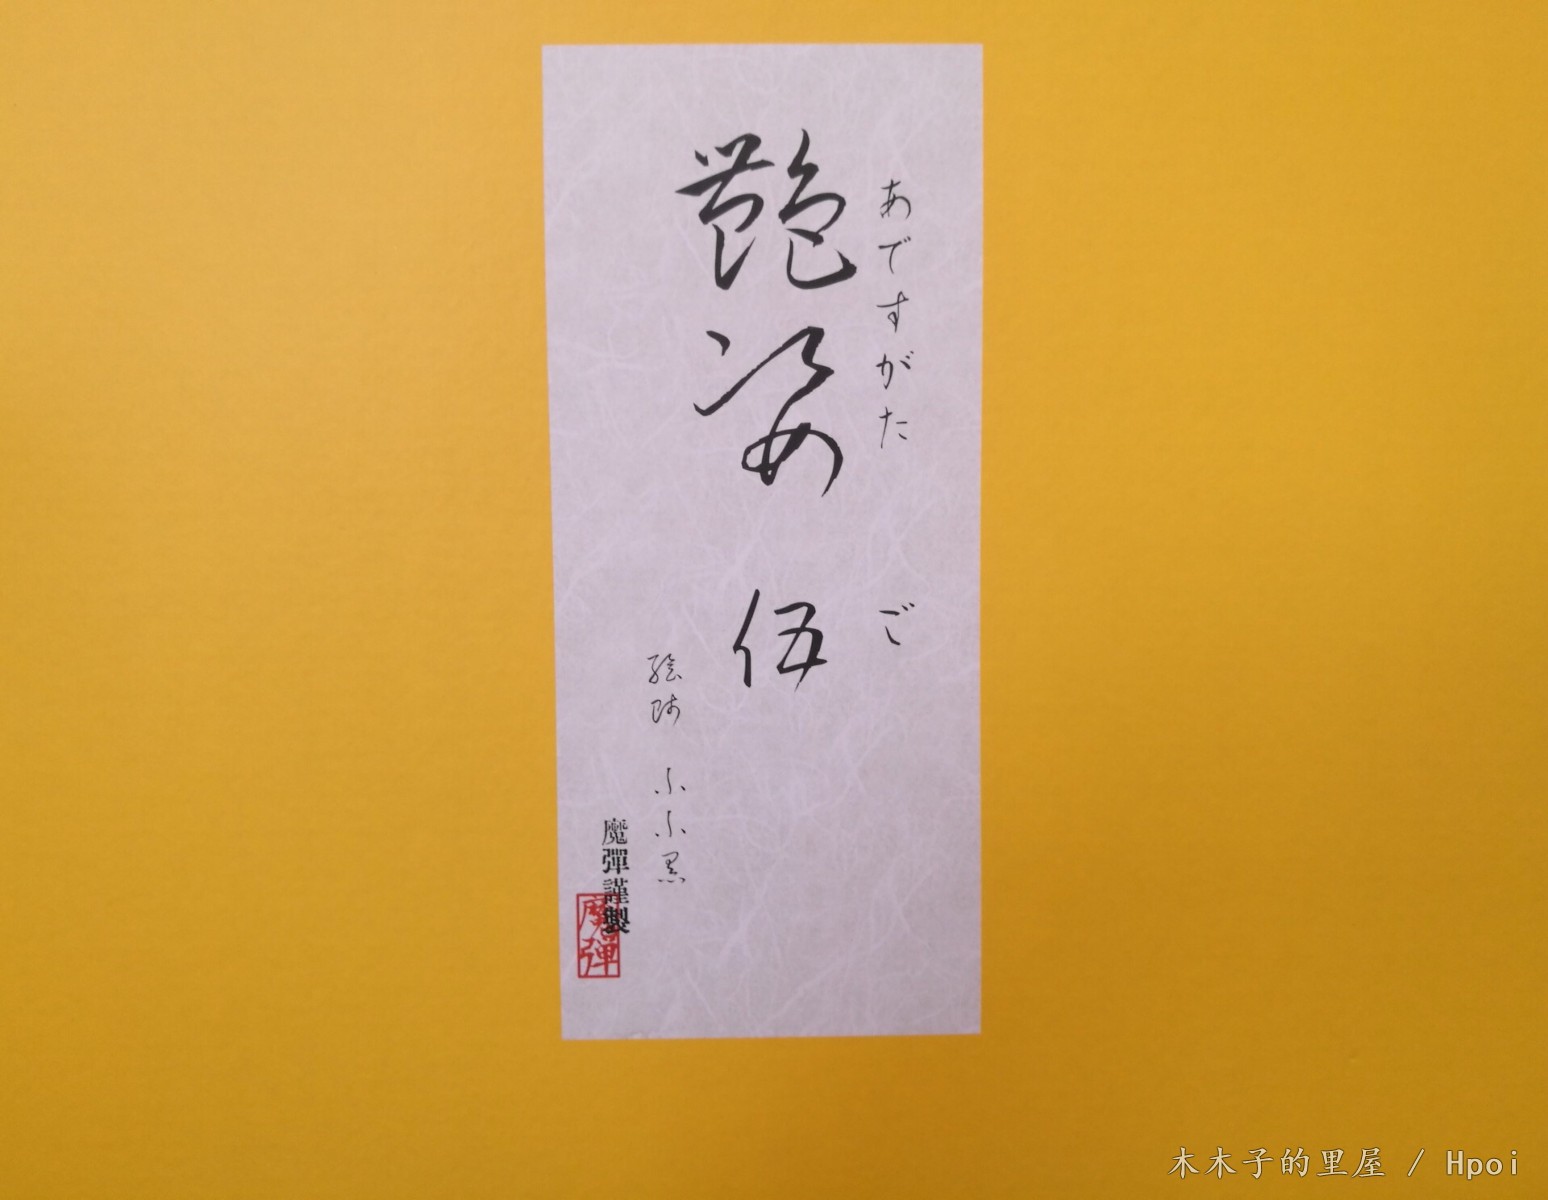 あですがた ご
艶姿 伍
絵師 ふふ黒
魔彈謹製
魔彈
木木子的里屋 / Hpoi